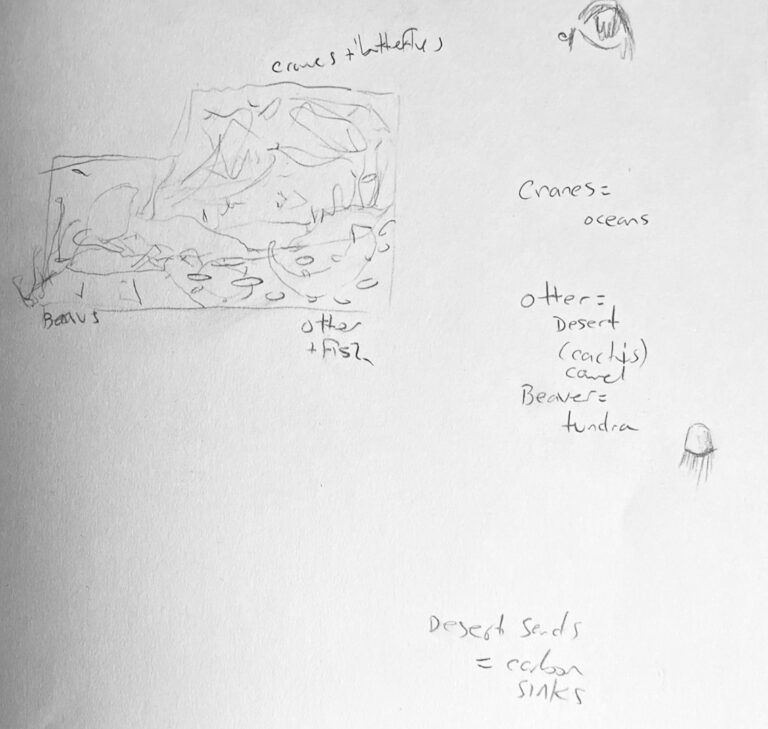 cranes + butterflies
Cranes =
oceans
Beavers
otter
+ Fish
otter =
Desert
(cactus)
camel
Beaver =
tundra
Desert sands
= carbon
sinks